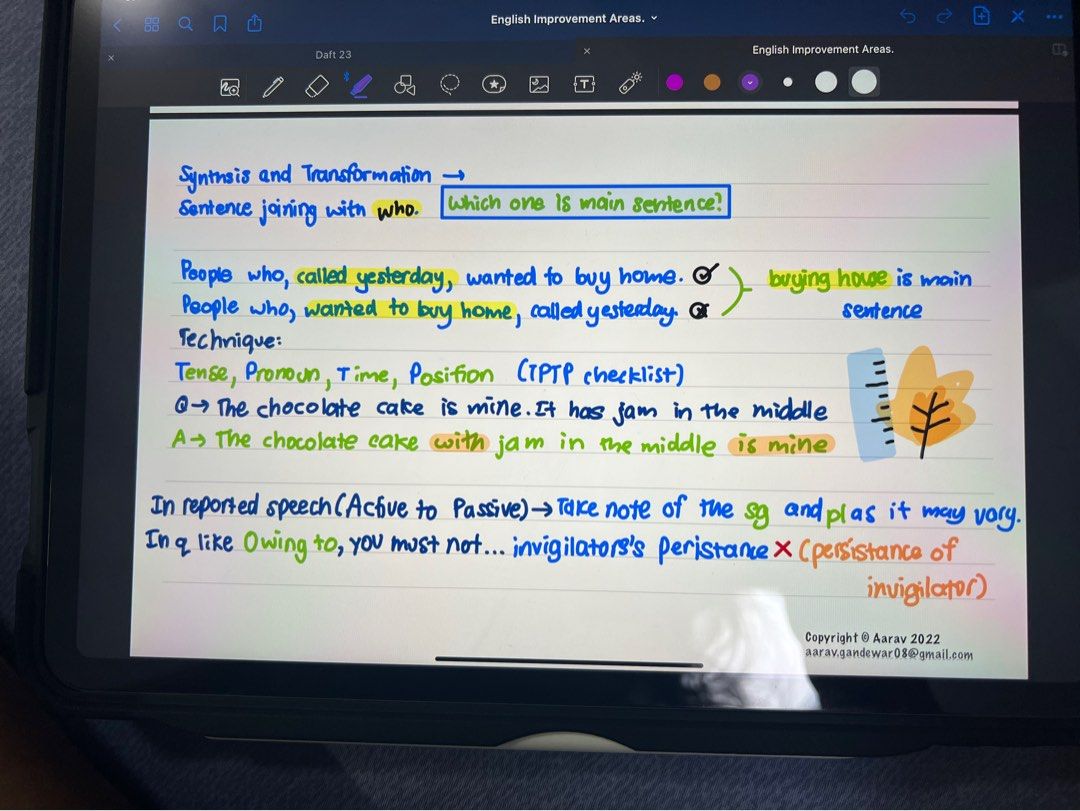 English Improvement Areas.
Daft 23
English Improvement Areas.
Synthsis and Transformation →
Sentence joining with who. Which one is main sentence?
People who, called yesterday, wanted to buy home.
People who, wanted to buy home, called yesterday.
buying house is main
sentence
Technique:
Tense, Pronoun, Time, Position (TPTP checklist)
Q→ The chocolate cake is mine. It has jam in the middle
A→ The chocolate cake with jam in the middle is mine
In reported speech (Active to Passive) → Take note of the sg and pl as it may vary.
In q like Owing to, you must not... invigilators's peristance × (persistance of
invigilator)
Copyright © Aarav 2022
aarav.gandewar08@gmail.com